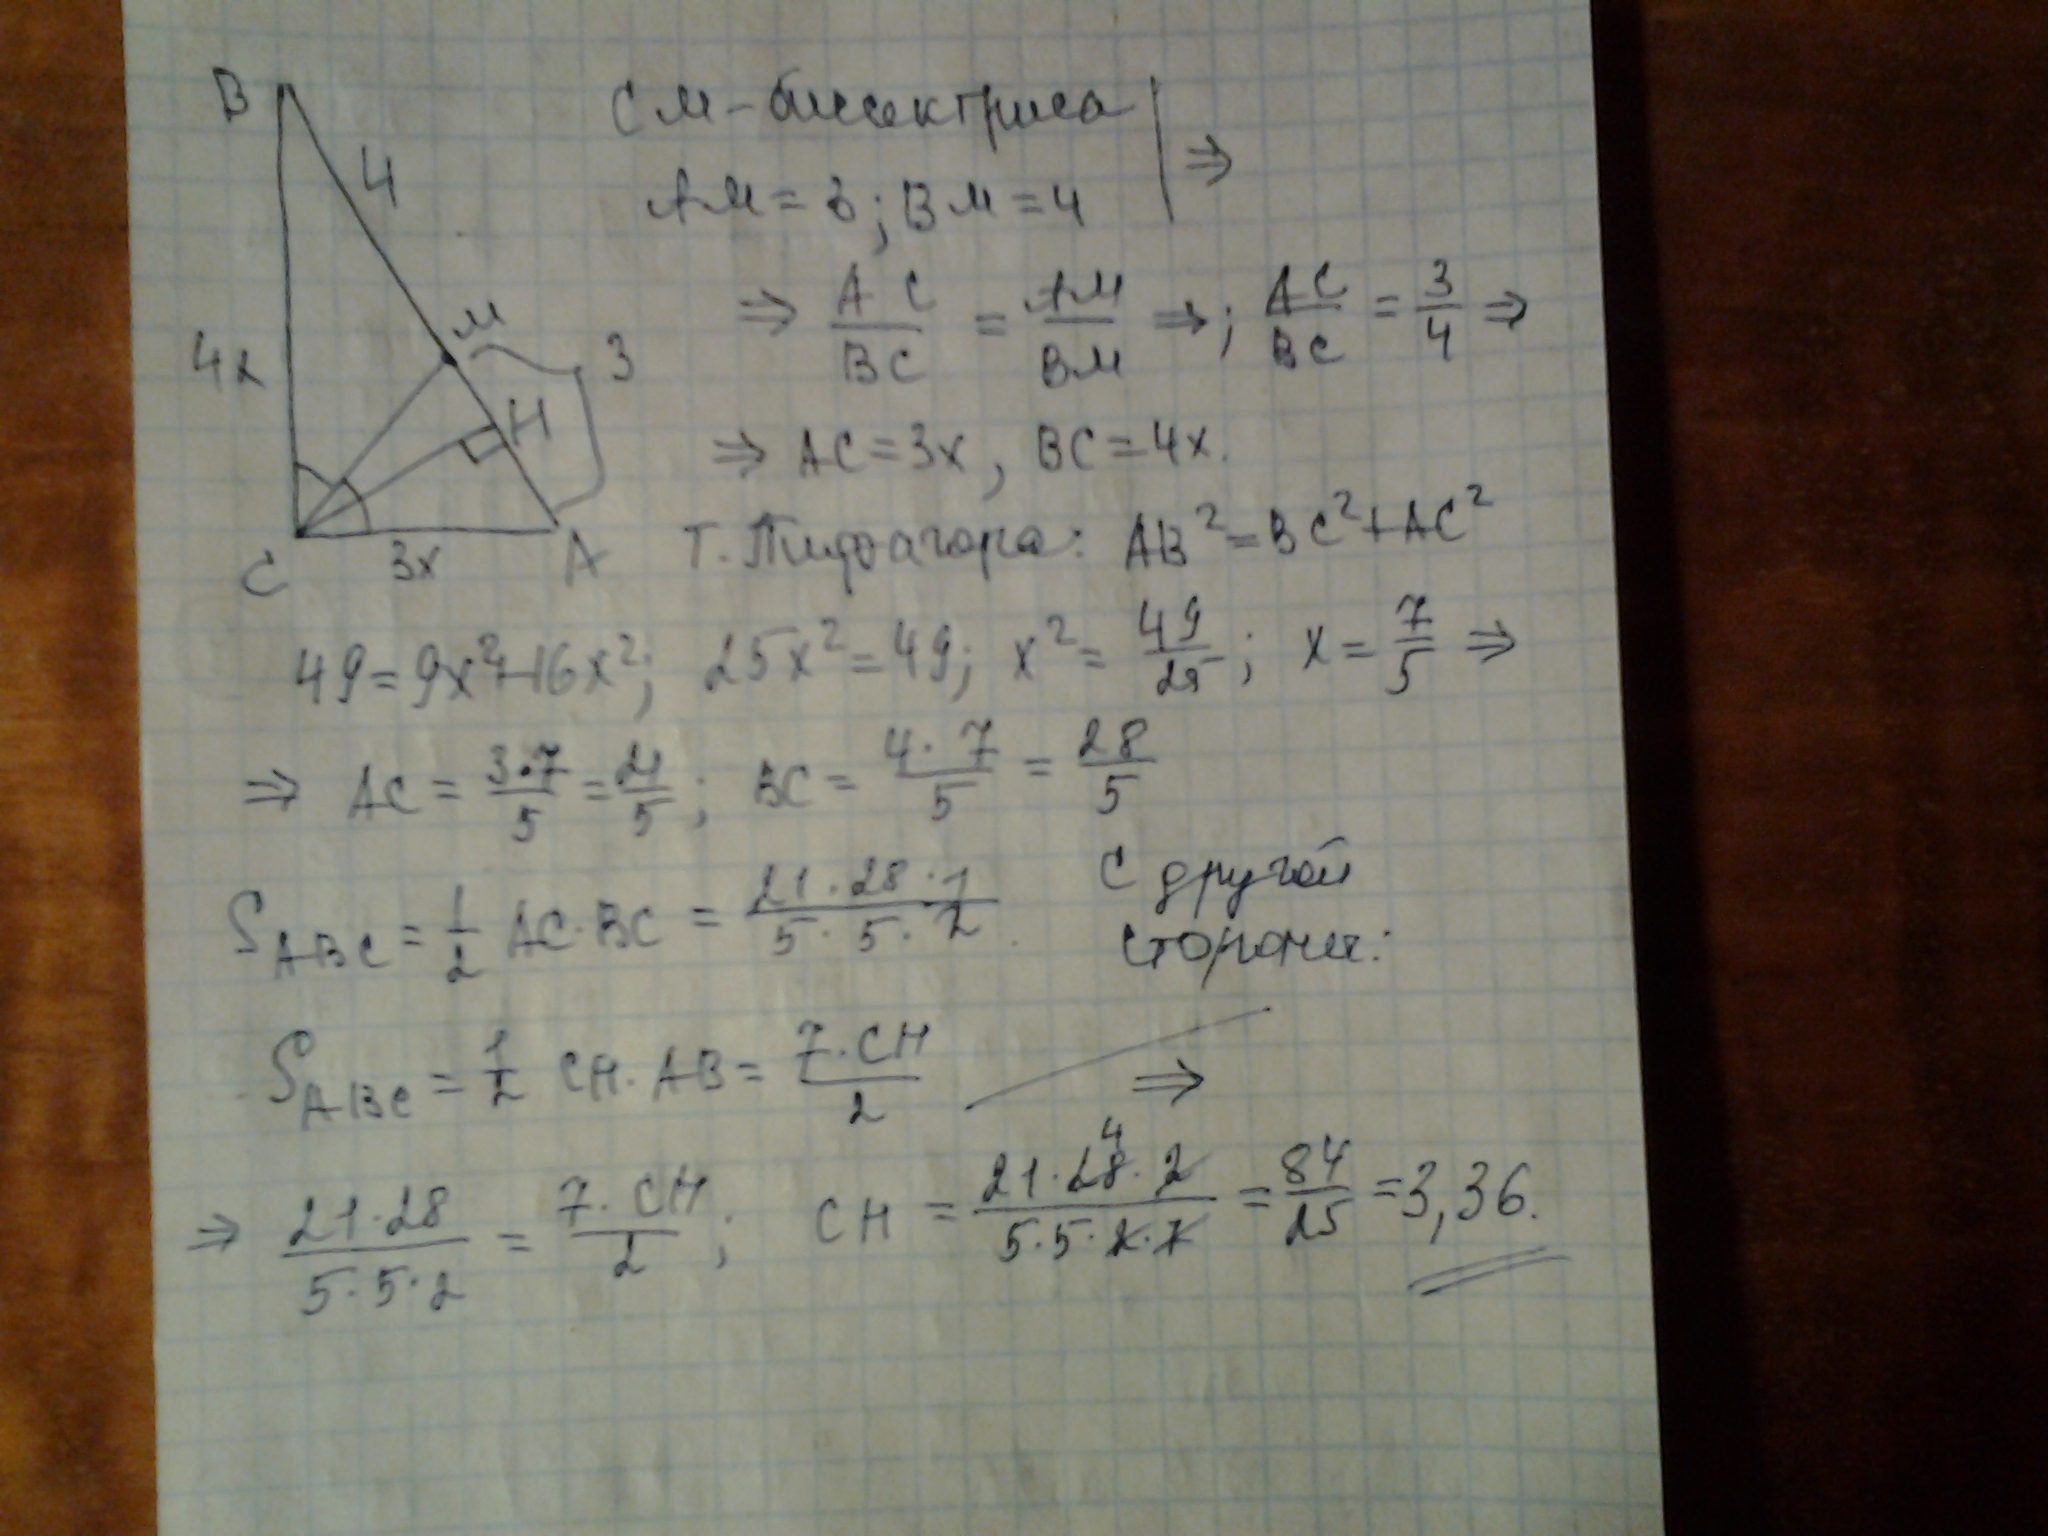 B
4
M
4x
3
H
C
3x
A
СМ - биссектриса
AM = 3; BM = 4 | ⇒
⇒ AC/BC = AM/BM ⇒; AC/BC = 3/4 ⇒
⇒ AC = 3x, BC = 4x.
Т. Пифагора: AB² = BC² + AC²
49 = 9x² + 16x²; 25x² = 49; x² = 49/25; x = 7/5 ⇒
⇒ AC = 3·7/5 = 21/5; BC = 4·7/5 = 28/5
S ABC = 1/2 AC·BC = 21·28·1/5·5·2. С другой
стороны:
S ABC = 1/2 CH·AB = 7·CH/2 ⇒
⇒ 21·28/5·5·2 = 7·CH/2; CH = 21·28·2/5·5·2·7 = 84/25 = 3,36.
4